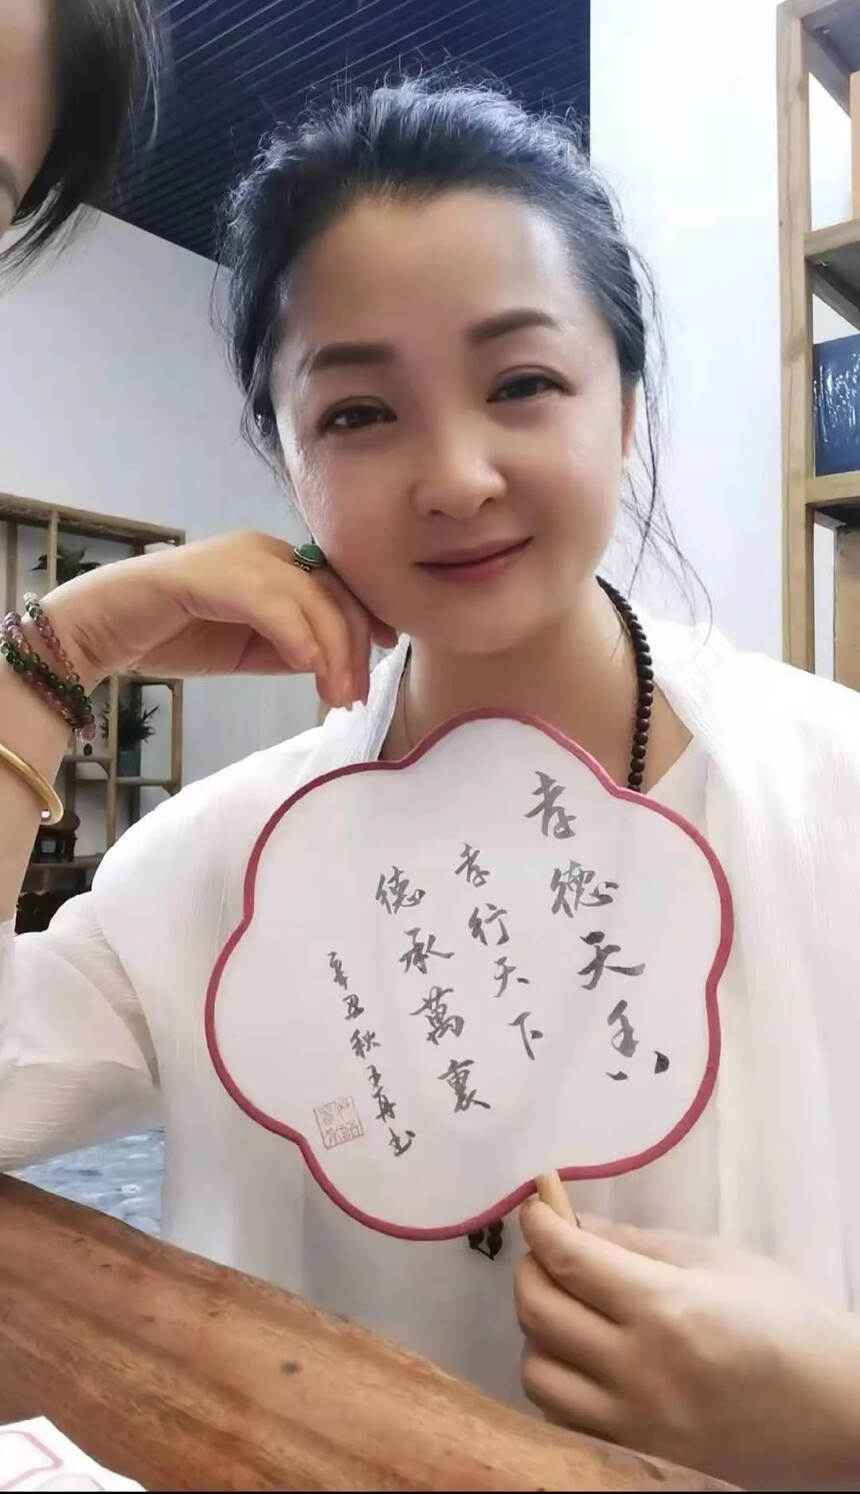 孝德天下
孝行天下
德承萬裏
辛丑秋王丹书